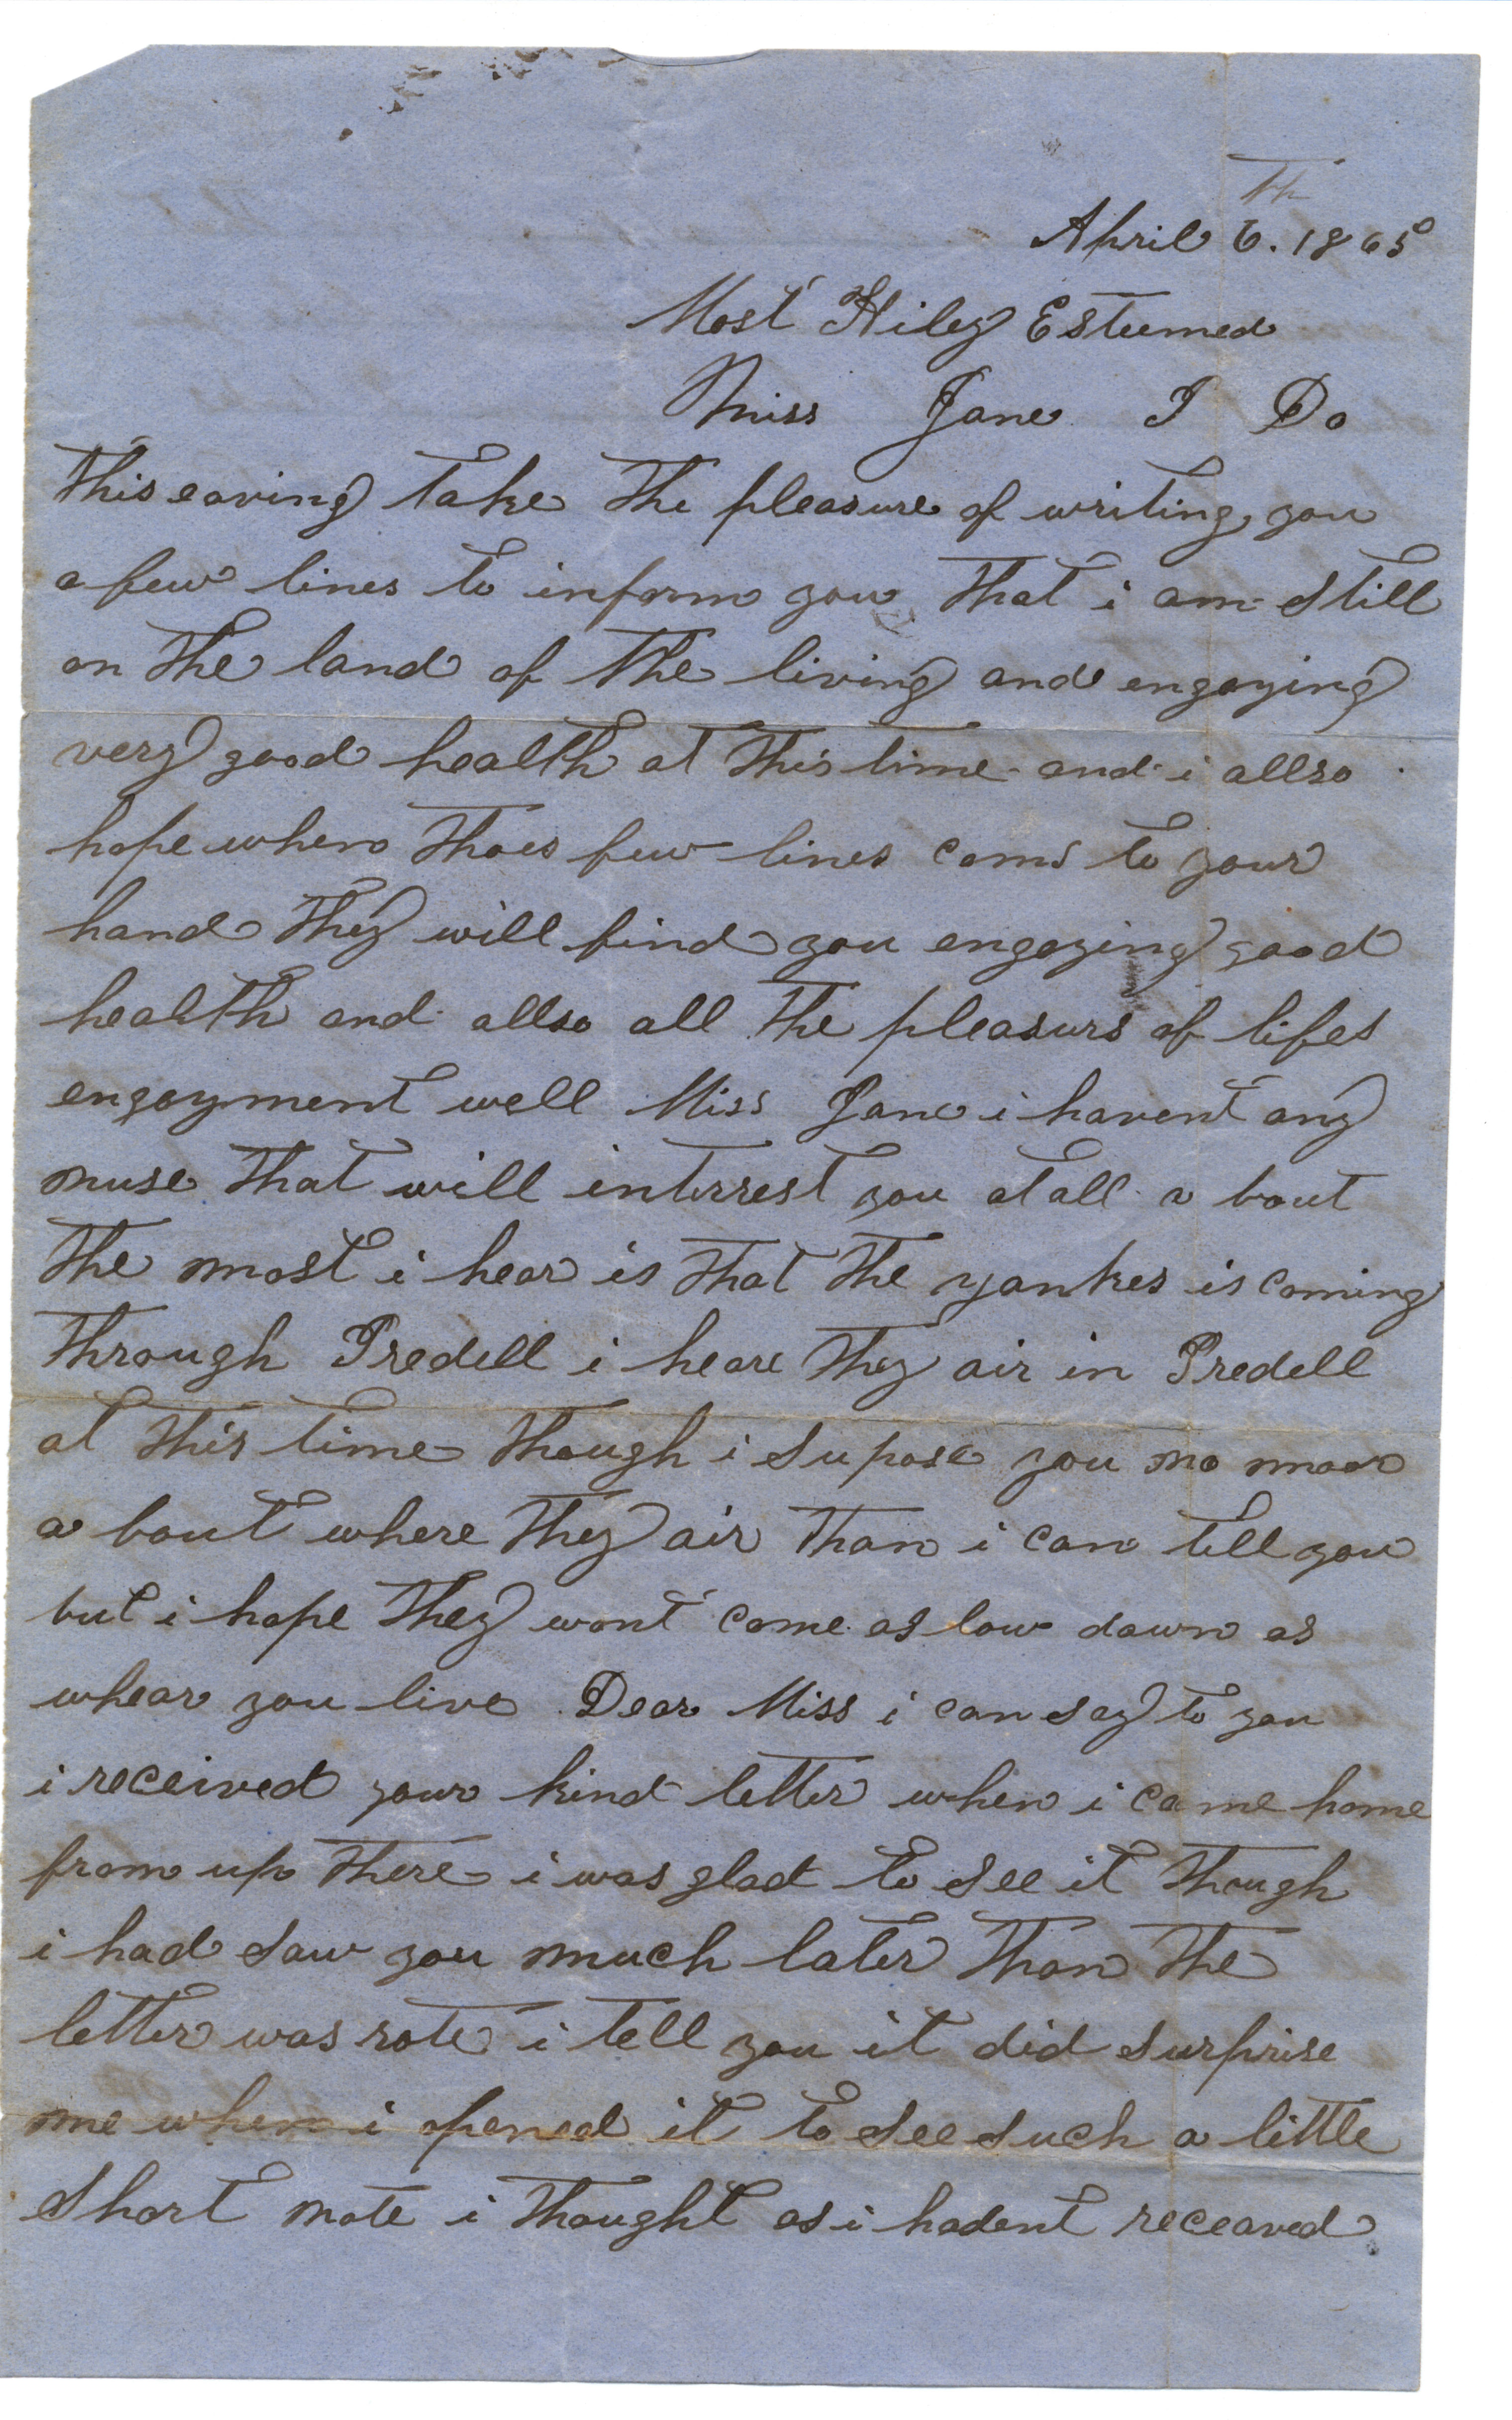 April 6th. 1865
Most Hiley Esteemed
Miss Jane I Do
this eaving take the pleasure of writing you
a few lines to inform you that i am still
on the land of the living and engoying
very good health at this time and i allso
hope when thoes few lines coms to your
hand they will find you engoying good
health and allso all the pleasurs of lifes
engoyment well Miss Jane i havent any
nuse that will interrest you atall a bout
the most i hear is that the yankes is coming
through Iredell i heare they air in Iredell
at this time though i supose you no moor
a bout where they air than i can tell you
but i hope they wont come as low down as
whear you live Dear Miss i can say to you
i received your kind letter when i came home
from up there i was glad to see it though
i had saw you much later than the
letter was rote i tell you it did surprise
me when i opened it to see such a little
short note i thought as i hadent receaved